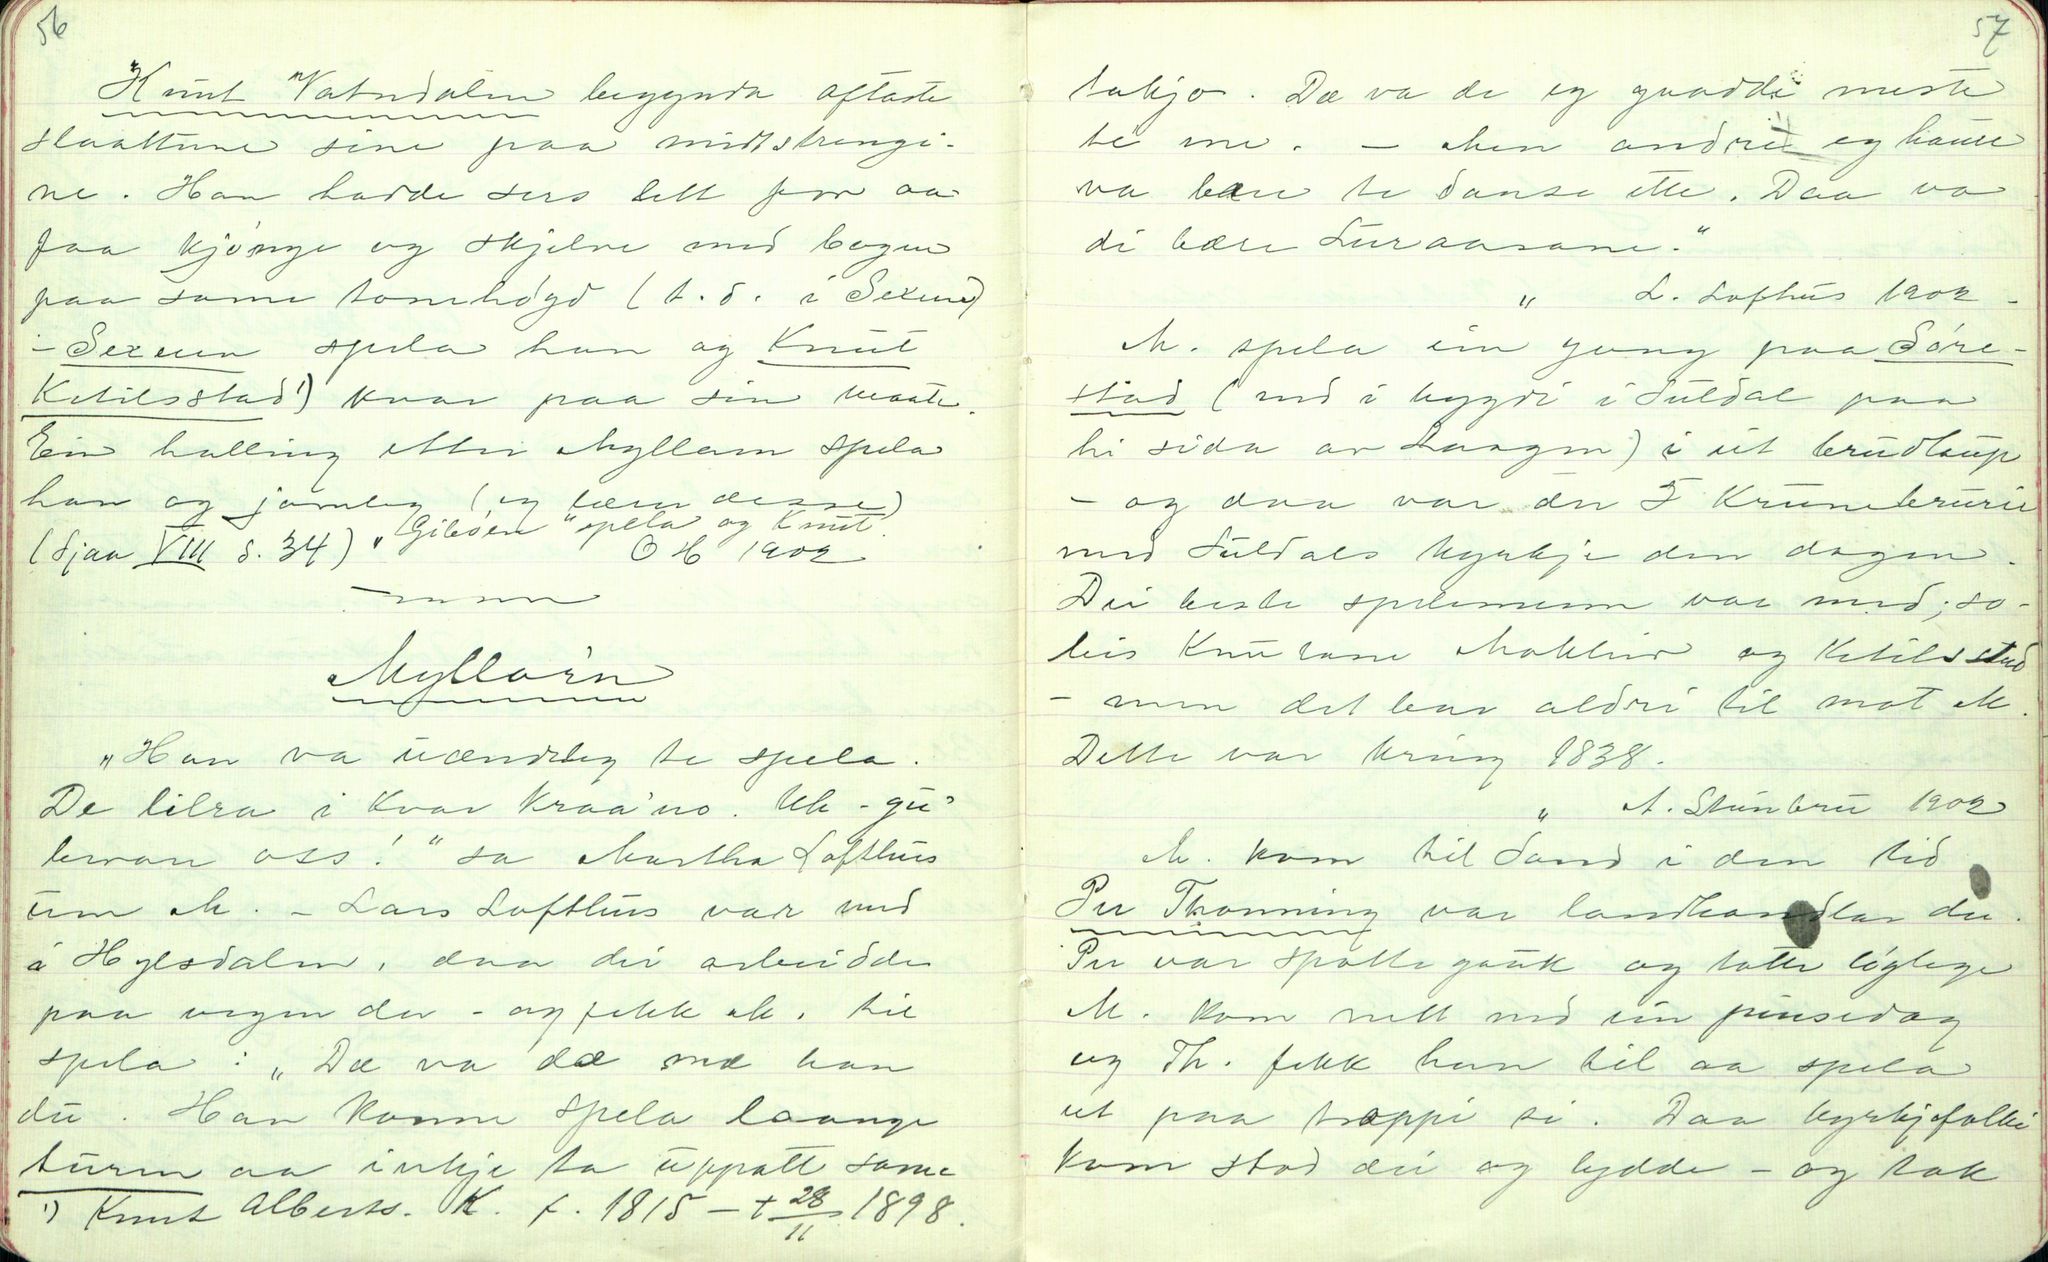 56
Knut Vatndalen begynda oftaste
slaattune sine paa midtstrengi-
ne. Han hadde sers lett for aa
faa kjønge og skjelve med bogen
paa same tonehøgd (t. d. i Sexeren)
- Sexeren spela han og Knut
Ketilsstad ¹) kvar paa sin maate.
Ein halling etter Myllarn spela
han og jamleg (eg lærn desse)
„Gibøen" spela og Knut.
(Sjaa VIII s. 34) O H 1902
Myllarn
„Han va uændeleg te spela.
De tilra i kvar kraa'no. Uh - gu'
bevare oss!" sa Martha Lofthus
um M. - Lars Lofthus var med
i Hylsdalen, daa dei arbeidde
paa vegen der - og fekk M. til
spela: „Dæ va dæ mæ han
du. Han konne spela laange
turen aa inkje ta uppatt same
¹) Knut Alberts. K. f. 1815 - † 28/11 1898.
57
takjo. Dæ va de eg gnadde meste
te me. - Men andre eg høure
va bære te danse ette. Daa va
di bære Suraasane."
„ L. Lofthus 1902 -
M. spela ein gong paa Søre-
stad (ned i bygdi i Suldal paa
hi sida av Laagen) i eit brudlaup
- og daa var der 5 krunebrurer
med Suldals kyrkje den dagen.
Dei beste spelemenn var med; so-
leis Knutane Moklind og Ketilsstad
- men det bar aldri til mot M.
Dette var kring 1838.
„ A. Stunbru 1902
M. kom til Sand i den tid
Per Thonning var landhandlar der.
Per var spottegauk og totte løglege
M. kom nett ned ein pinsedag
og Th. fekk han til aa spela
ut paa trappi si. Daa kyrkjefolki
kom stod dei og lydde - og tok